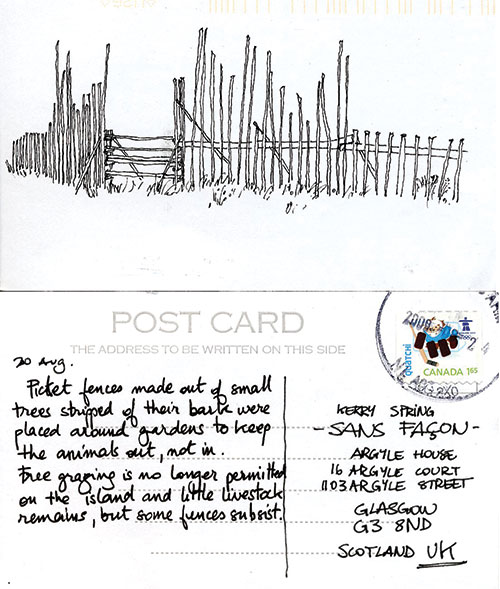 POST CARD
THE ADDRESS TO BE WRITTEN ON THIS SIDE
20 Aug.
Picket fences made out of small
trees stripped of their bark were
placed around gardens to keep
the animals out, not in.
Free grazing is no longer permitted
on the island and little livestock
remains, but some fences subsist.
QUATCHI
CANADA 165
2009
24
KERRY SPRING
-SANS FAÇON-
ARGYLE HOUSE
16 ARGYLE COURT
1103 ARGYLE STREET
GLASGOW
G3 8ND
SCOTLAND UK